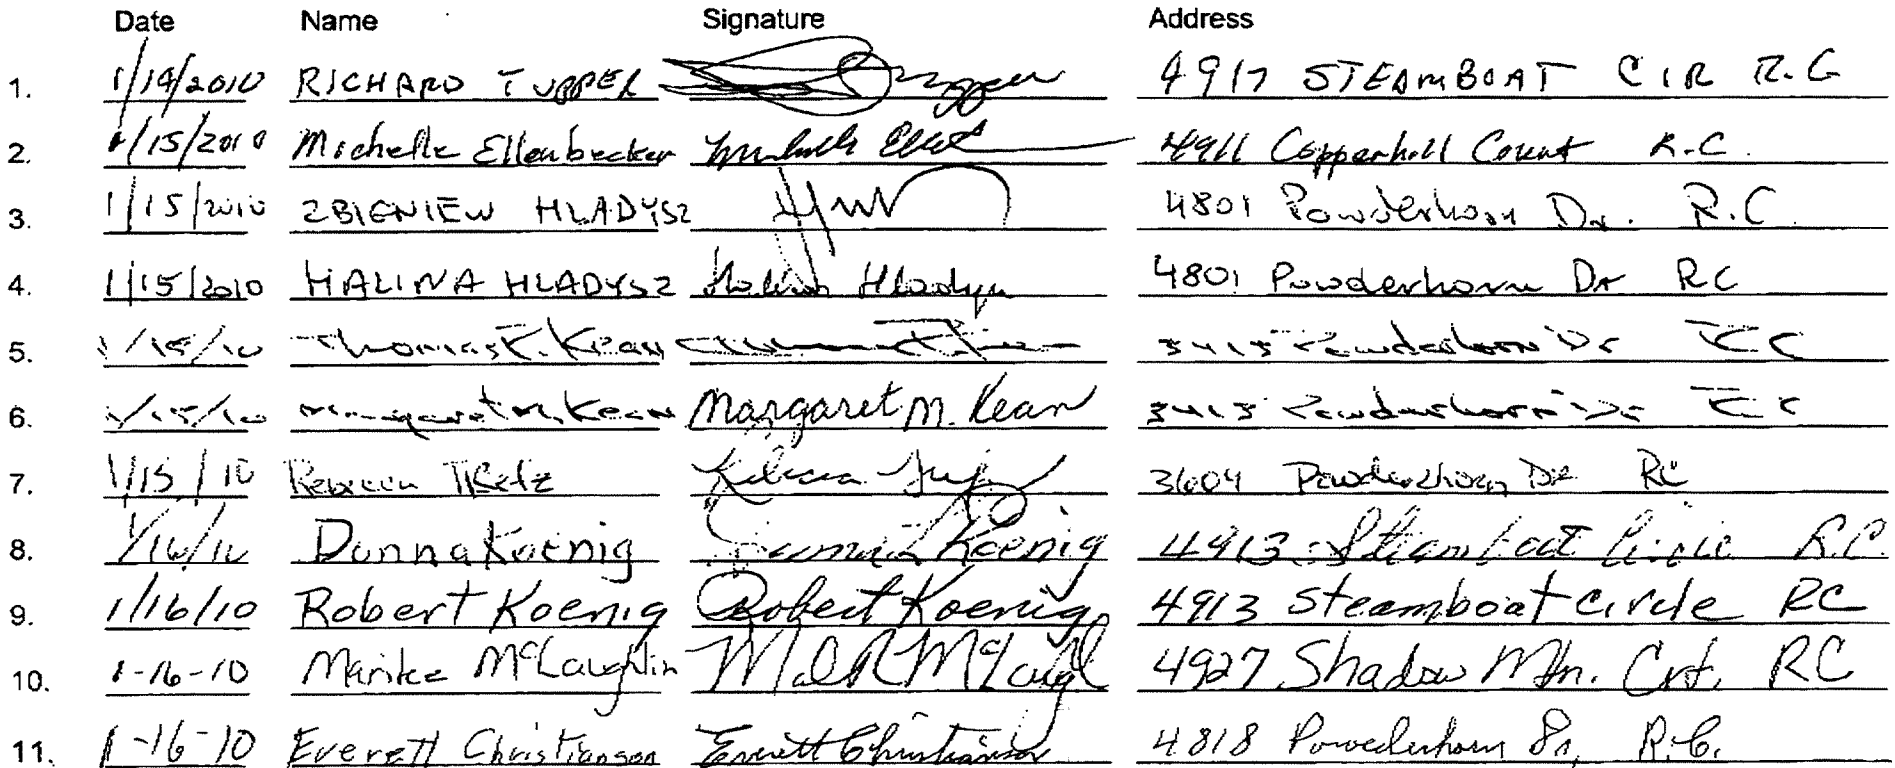 Date Name Signature Address
1. 1/14/2010 RICHARD TUPPER 4917 STEAMBOAT CIR R.C
2. 1/15/2010 Michelle Ellenbecker 4911 Copperhill Court R.C.
3. 1/15/2010 ZBIGNIEW HLADYSZ 4801 Powderhorn Dr. R.C.
4. 1/15/2010 HALINA HLADYSZ Halina Hladysz 4801 Powderhorn Dr RC
5. 1/15/10 Thomas K. Kean 3413 Powderhorn Dr RC
6. 1/15/10 Margaret M. Kean Margaret M. Kean 3413 Powderhorn Dr RC
7. 1/15/10 Rebecca 3604 Powderhorn Dr RC
8. 1/16/10 Donna Koenig Donna Koenig 4913 Steamboat Circle R.C.
9. 1/16/10 Robert Koenig Robert Koenig 4913 Steamboat Circle RC
10. 1-16-10 McLaughlin 4927 Shadow Mtn. Crt. RC
11. 1-16-10 Everett Christianson Everett Christianson 4818 Powederhorn Dr, R.C.